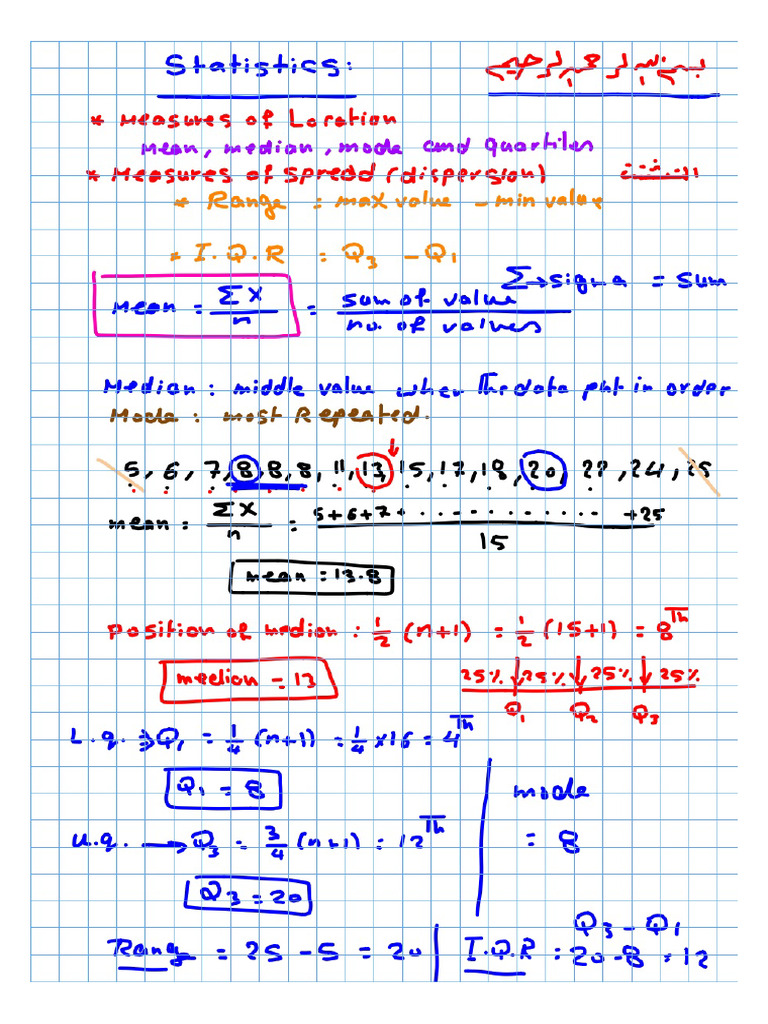 Statistics:
* Measures of Location
mean, median, mode and quartiles
* Measures of spread (dispersion)
* Range = max value - min value
* I.Q.R = Q3 - Q1
Σ → sigma = sum
mean = ΣX / n = sum of value / no. of values
Median : middle value when The data put in order
Mode : most Repeated.
5, 6, 7, 8, 8, 8, 11, 13, 15, 17, 18, 20, 22, 24, 25
mean = ΣX / n = 5+6+7+ . . . . . . . . . . . . . +25 / 15
mean = 13.8
Position of median : 1/2 (n+1) = 1/2 (15+1) = 8Th
median = 13
25% 25% 25% 25%
Q1 Q2 Q3
L.q. ⇒ Q1 = 1/4 (n+1) = 1/4 × 16 = 4Th
Q1 = 8
mode
= 8
u.q. → Q3 = 3/4 (n+1) = 12Th
Q3 = 20
Q3 - Q1
Rang = 25 - 5 = 20
I.Q.R = 20 - 8 = 12